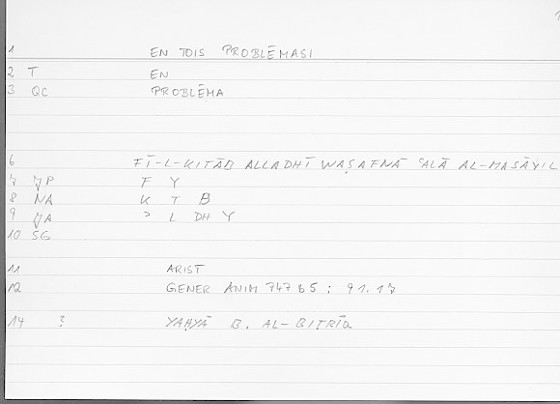 1 EN TOIS PROBLĒMASI
2 T EN
3 QC PROBLĒMA
6 FĪ-L-KITĀB ALLADHĪ WAṢAFNĀ ʿALĀ AL-MASĀYIL
7 P F Y
8 NA K T B
9 A ʾ L DH Y
10 SG
11 ARIST
12 GENER ANIM 747 b 5 : 91.17
14 ? YAḤYĀ B. AL-BIṬRĪQ